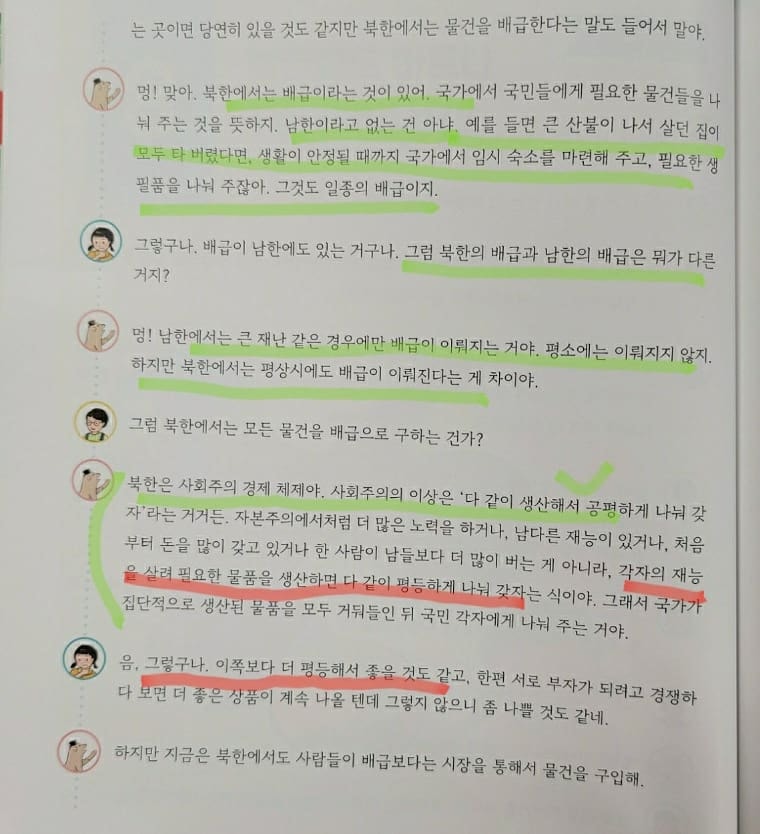 는 곳이면 당연히 있을 것도 같지만 북한에서는 물건을 배급한다는 말도 들어서 말야.
멍! 맞아. 북한에서는 배급이라는 것이 있어. 국가에서 국민들에게 필요한 물건들을 나
눠 주는 것을 뜻하지. 남한이라고 없는 건 아냐. 예를 들면 큰 산불이 나서 살던 집이
모두 타 버렸다면, 생활이 안정될 때까지 국가에서 임시 숙소를 마련해 주고, 필요한 생
필품을 나눠 주잖아. 그것도 일종의 배급이지.
그렇구나. 배급이 남한에도 있는 거구나. 그럼 북한의 배급과 남한의 배급은 뭐가 다른
거지?
멍! 남한에서는 큰 재난 같은 경우에만 배급이 이뤄지는 거야. 평소에는 이뤄지지 않지.
하지만 북한에서는 평상시에도 배급이 이뤄진다는 게 차이야.
그럼 북한에서는 모든 물건을 배급으로 구하는 건가?
북한은 사회주의 경제 체제야. 사회주의의 이상은 ‘다 같이 생산해서 공평하게 나눠 갖
자’라는 거거든. 자본주의에서처럼 더 많은 노력을 하거나, 남다른 재능이 있거나, 처음
부터 돈을 많이 갖고 있거나 한 사람이 남들보다 더 많이 버는 게 아니라, 각자의 재능
을 살려 필요한 물품을 생산하면 다 같이 평등하게 나눠 갖자는 식이야. 그래서 국가가
집단적으로 생산된 물품을 모두 거둬들인 뒤 국민 각자에게 나눠 주는 거야.
음, 그렇구나. 이쪽보다 더 평등해서 좋을 것도 같고, 한편 서로 부자가 되려고 경쟁하
다 보면 더 좋은 상품이 계속 나올 텐데 그렇지 않으니 좀 나쁠 것도 같네.
하지만 지금은 북한에서도 사람들이 배급보다는 시장을 통해서 물건을 구입해.